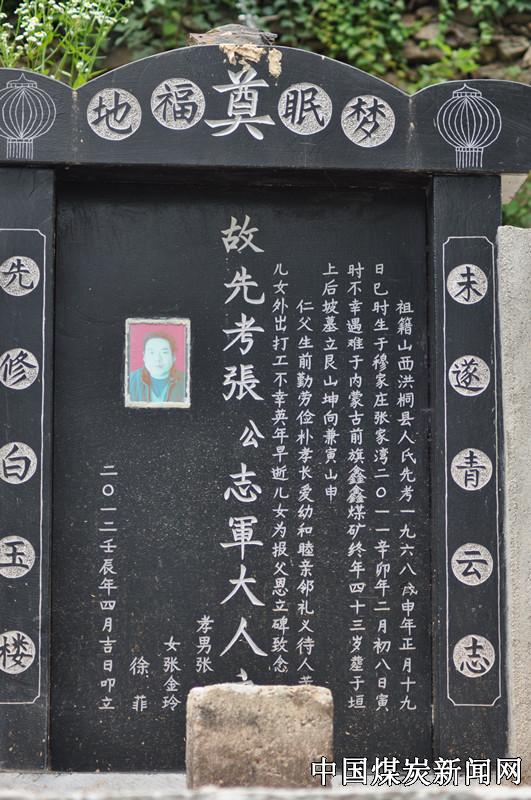 梦眠奠福地
未遂青云志
祖籍山西洪桐县人氏先考一九六八戊申年正月十九
日巳时生于穆家庄张家湾二〇一一辛卯年二月初八日寅
时不幸遇难于内蒙古前旗鑫鑫煤矿终年四十三岁塟于垣
上后坡墓立艮山坤向兼寅山申
仁父生前勤劳俭朴孝长爱幼和睦亲邻礼义待人
儿女外出打工不幸英年早逝儿女为报父恩立碑致念
故先考張公志軍大人
孝男张
女张金玲
徐菲
二〇一二壬辰年四月吉日叩立
先修白玉楼
中国煤炭新闻网